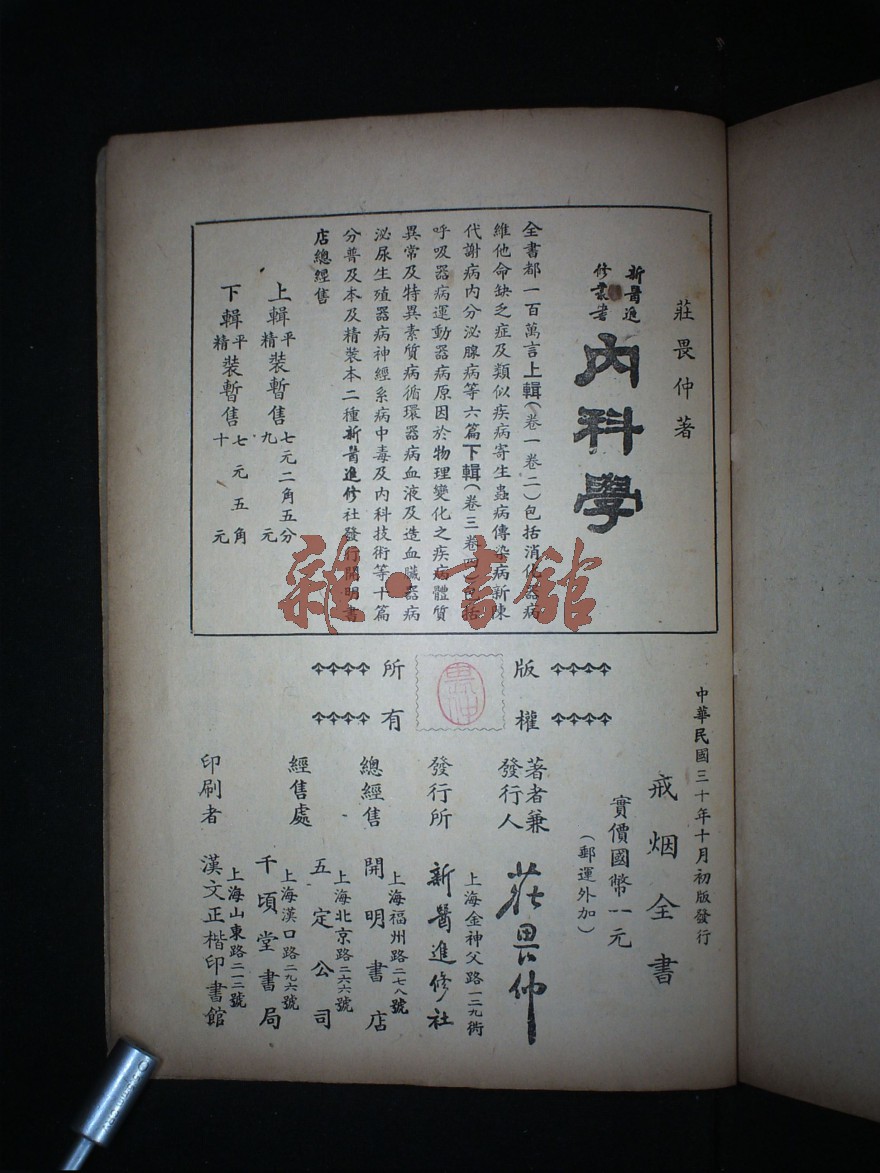 莊畏仲著
新醫進
修叢書
內科學
全書都一百萬言上輯(卷一卷二)包括消化器病
維他命缺乏症及類似疾病寄生蟲病傳染病新陳
代謝病內分泌腺病等六篇下輯(卷三卷四)包括
呼吸器病運動器病原因於物理變化之疾病體質
異常及特異素質病循環器病血液及造血臟器病
泌尿生殖器病神經系病中毒及內科技術等十篇
分普及本及精裝本二種新醫進修社發行開明書
店總經售
上輯平精裝暫售七元二角五分九元
下輯平精裝暫售七元五角十元
雜·書館
版權
所有
畏仲
中華民國三十年十月初版發行
戒烟全書
實價國幣一元
(郵運外加)
著者兼
發行人
莊畏仲
發行所
上海金神父路一二九衖
新醫進修社
總經售
上海福州路二七八號
開明書店
經售處
上海北京路二六六號
五定公司
上海漢口路二九六號
千頃堂書局
印刷者
上海山東路二一二號
漢文正楷印書館